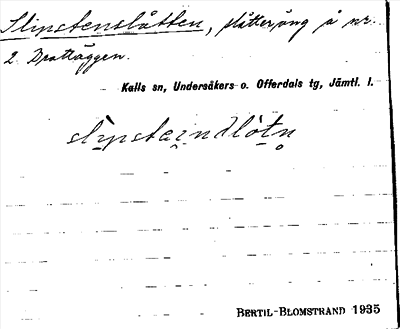 Slipstensslåtten, slåtteräng å nr.
2 Brattäggen.
Kalls sn, Undersåkers o. Offerdals tg, Jämtl. l.
BERTIL-BLOMSTRAND 1935